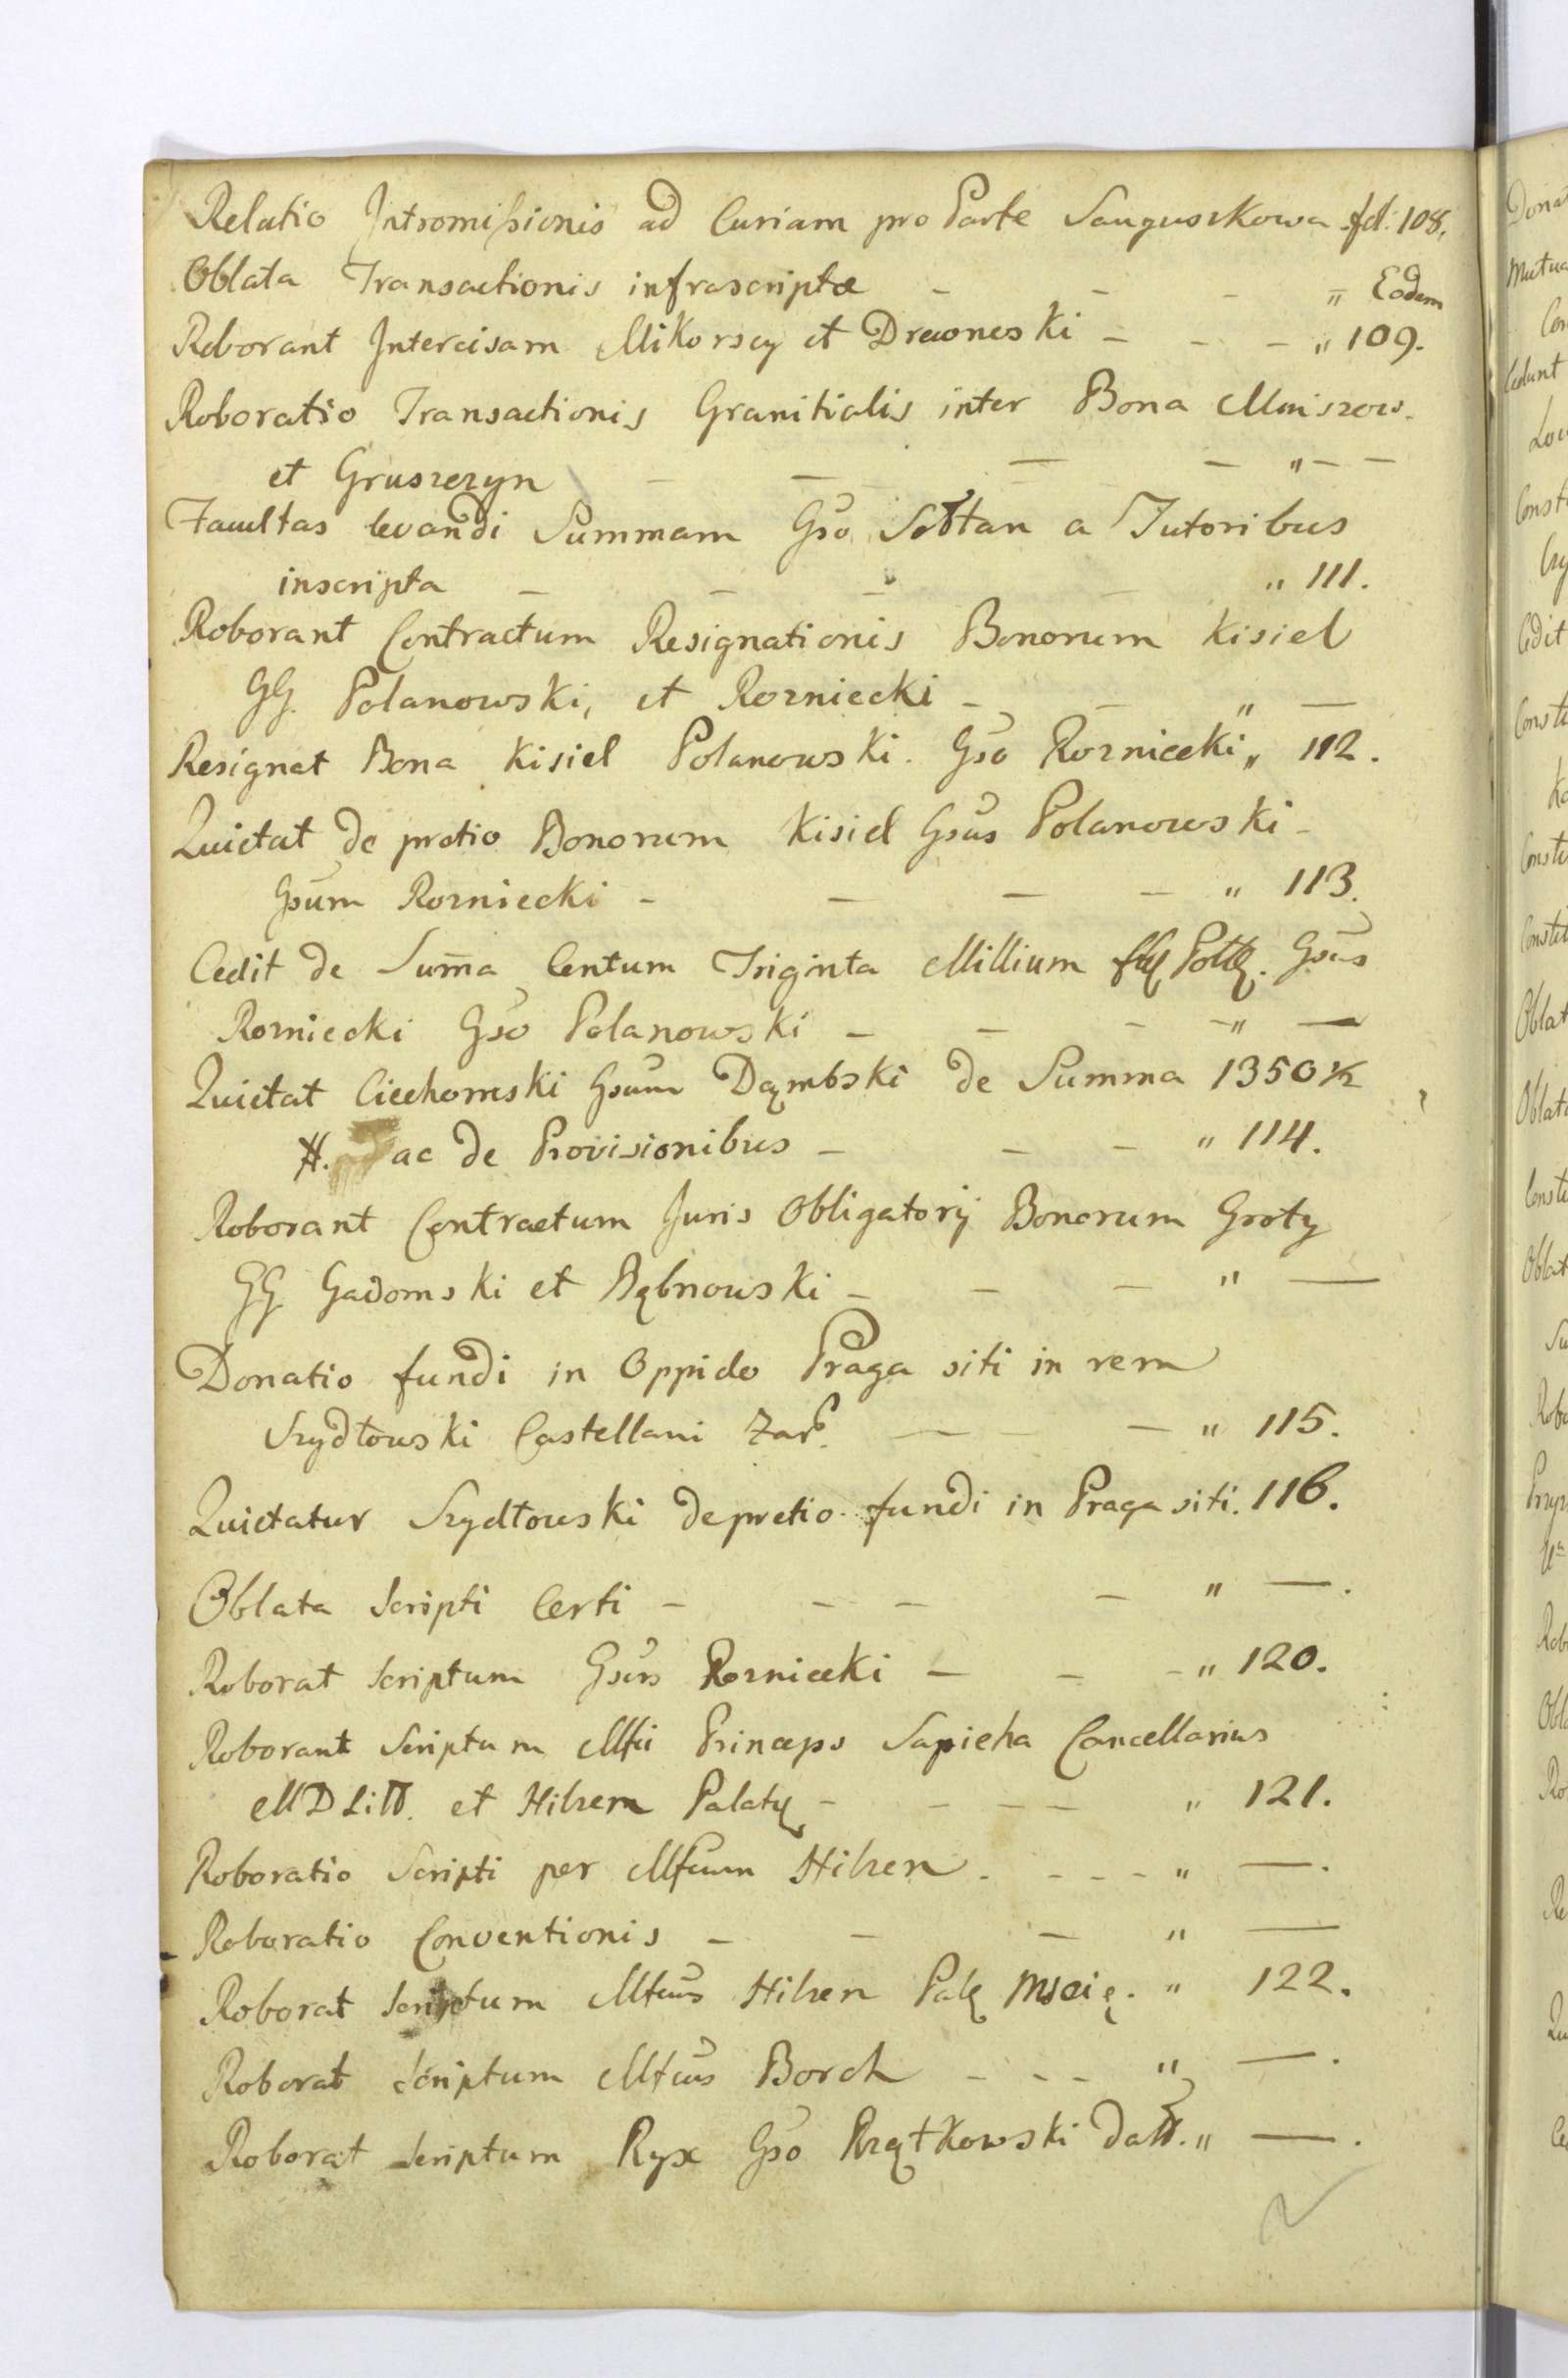 Relatio Intromissionis ad Curiam pro Parte Sanguszkowa fol: 108.
Oblata Transactionis infrascriptæ - - - " Eodem
Roborant Intercisam Mikorscy et Drewnoski - - - " 109.
Roboratio Transactionis Granitialis inter Bona Mniszew.
et Gruszczyn - - - - " - -
Facultas levandi Summam Gso Sołtan a Tutoribus
inscripta - - - - " 111.
Roborant Contractum Resignationis Bonorum Kisiel
GG. Polanowski, et Rozniecki - - " -
Resignat Bona Kisiel Polanowski. Gso Rozniecki " 112.
Quietat de pretio Bonorum Kisiel Gsus Polanowski -
Gsum Rozniecki - - - - " 113.
Cedit de Suma Centum Triginta Millium Gsus
Rozniecki Gso Polanowski - - - - " -
Quietat Ciechomski Gsum Dąmbski de Summa 1350
#. ac de Provisionibus - - - " 114.
Roborant Contractum Juris Obligatorij Bonorum Groty
GG Gadomski et Bębnowski - - - " -
Donatio fundi in Oppido Praga siti in rem
Szydłowski Castellani Zar. - - " 115.
Quietatur Szydłowski de pretio fundi in Praga siti. 116.
Oblata Scripti Certi - - - - " -.
Roborat Scriptum Gsus Rozniecki - - - " 120.
Roborant Scriptum Mfci Princeps Sapieha Cancellarius
MDLitt. et Hilzen Palat - - - - " 121.
Roboratio Scripti per Mfcum Hilzen. - - - " -.
Roboratio Conventionis - - - " -
Roborat Scriptum Mfcus Hilzen Msci. " 122.
Roborat Scriptum Mfcus Borch - - - " -.
Roborat Scriptum Ryx Gso Rzątkowski datt. " -.